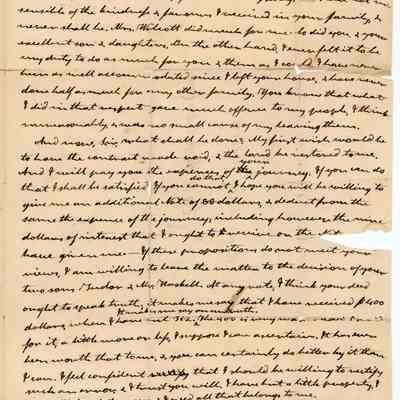 sensible of the kindness & favours I received in your family, &
never shall be. Mrs. Wolcott did much for me. So did you, & your
excellent son & daughters. On the other hand, I ever felt it to be
my duty to do as much for you & them as I could. I have never
been as well accommodated since I left your house, & have never
done half as much for any other family. You know that what
I did in that respect gave much offence to my people, I think
unreasonably, & was no small cause of my leaving them.
And now, Sir, what shall be done? My first wish would be
to have the contract made void, & the land be restored to me.
And I will pay you the expense of your journey. If you can do
that I shall be satisfied. If you cannot do that, I hope you will be willing to
give me an additional Note of 88 dollars, & deduct from the
same the expense of the journey, including however the nine
dollars of interest that I ought to receive on the
have given me. If these propositions do not meet your
views, I am willing to leave the matter to the decision of your
two sons, & Mr. Haskell. At any rate, I think your deed
ought to speak truth, it makes me say that I have received $400
dollars, when I have
it is in my own
for it, a little more or less, I suppose I can ascertain. It has never
been worth that to me, & you can certainly do better by it than
I can. I feel confident that I should be willing to rectify
such an error, & I trust you will. I have but a little property, &
I need all that belongs to me.